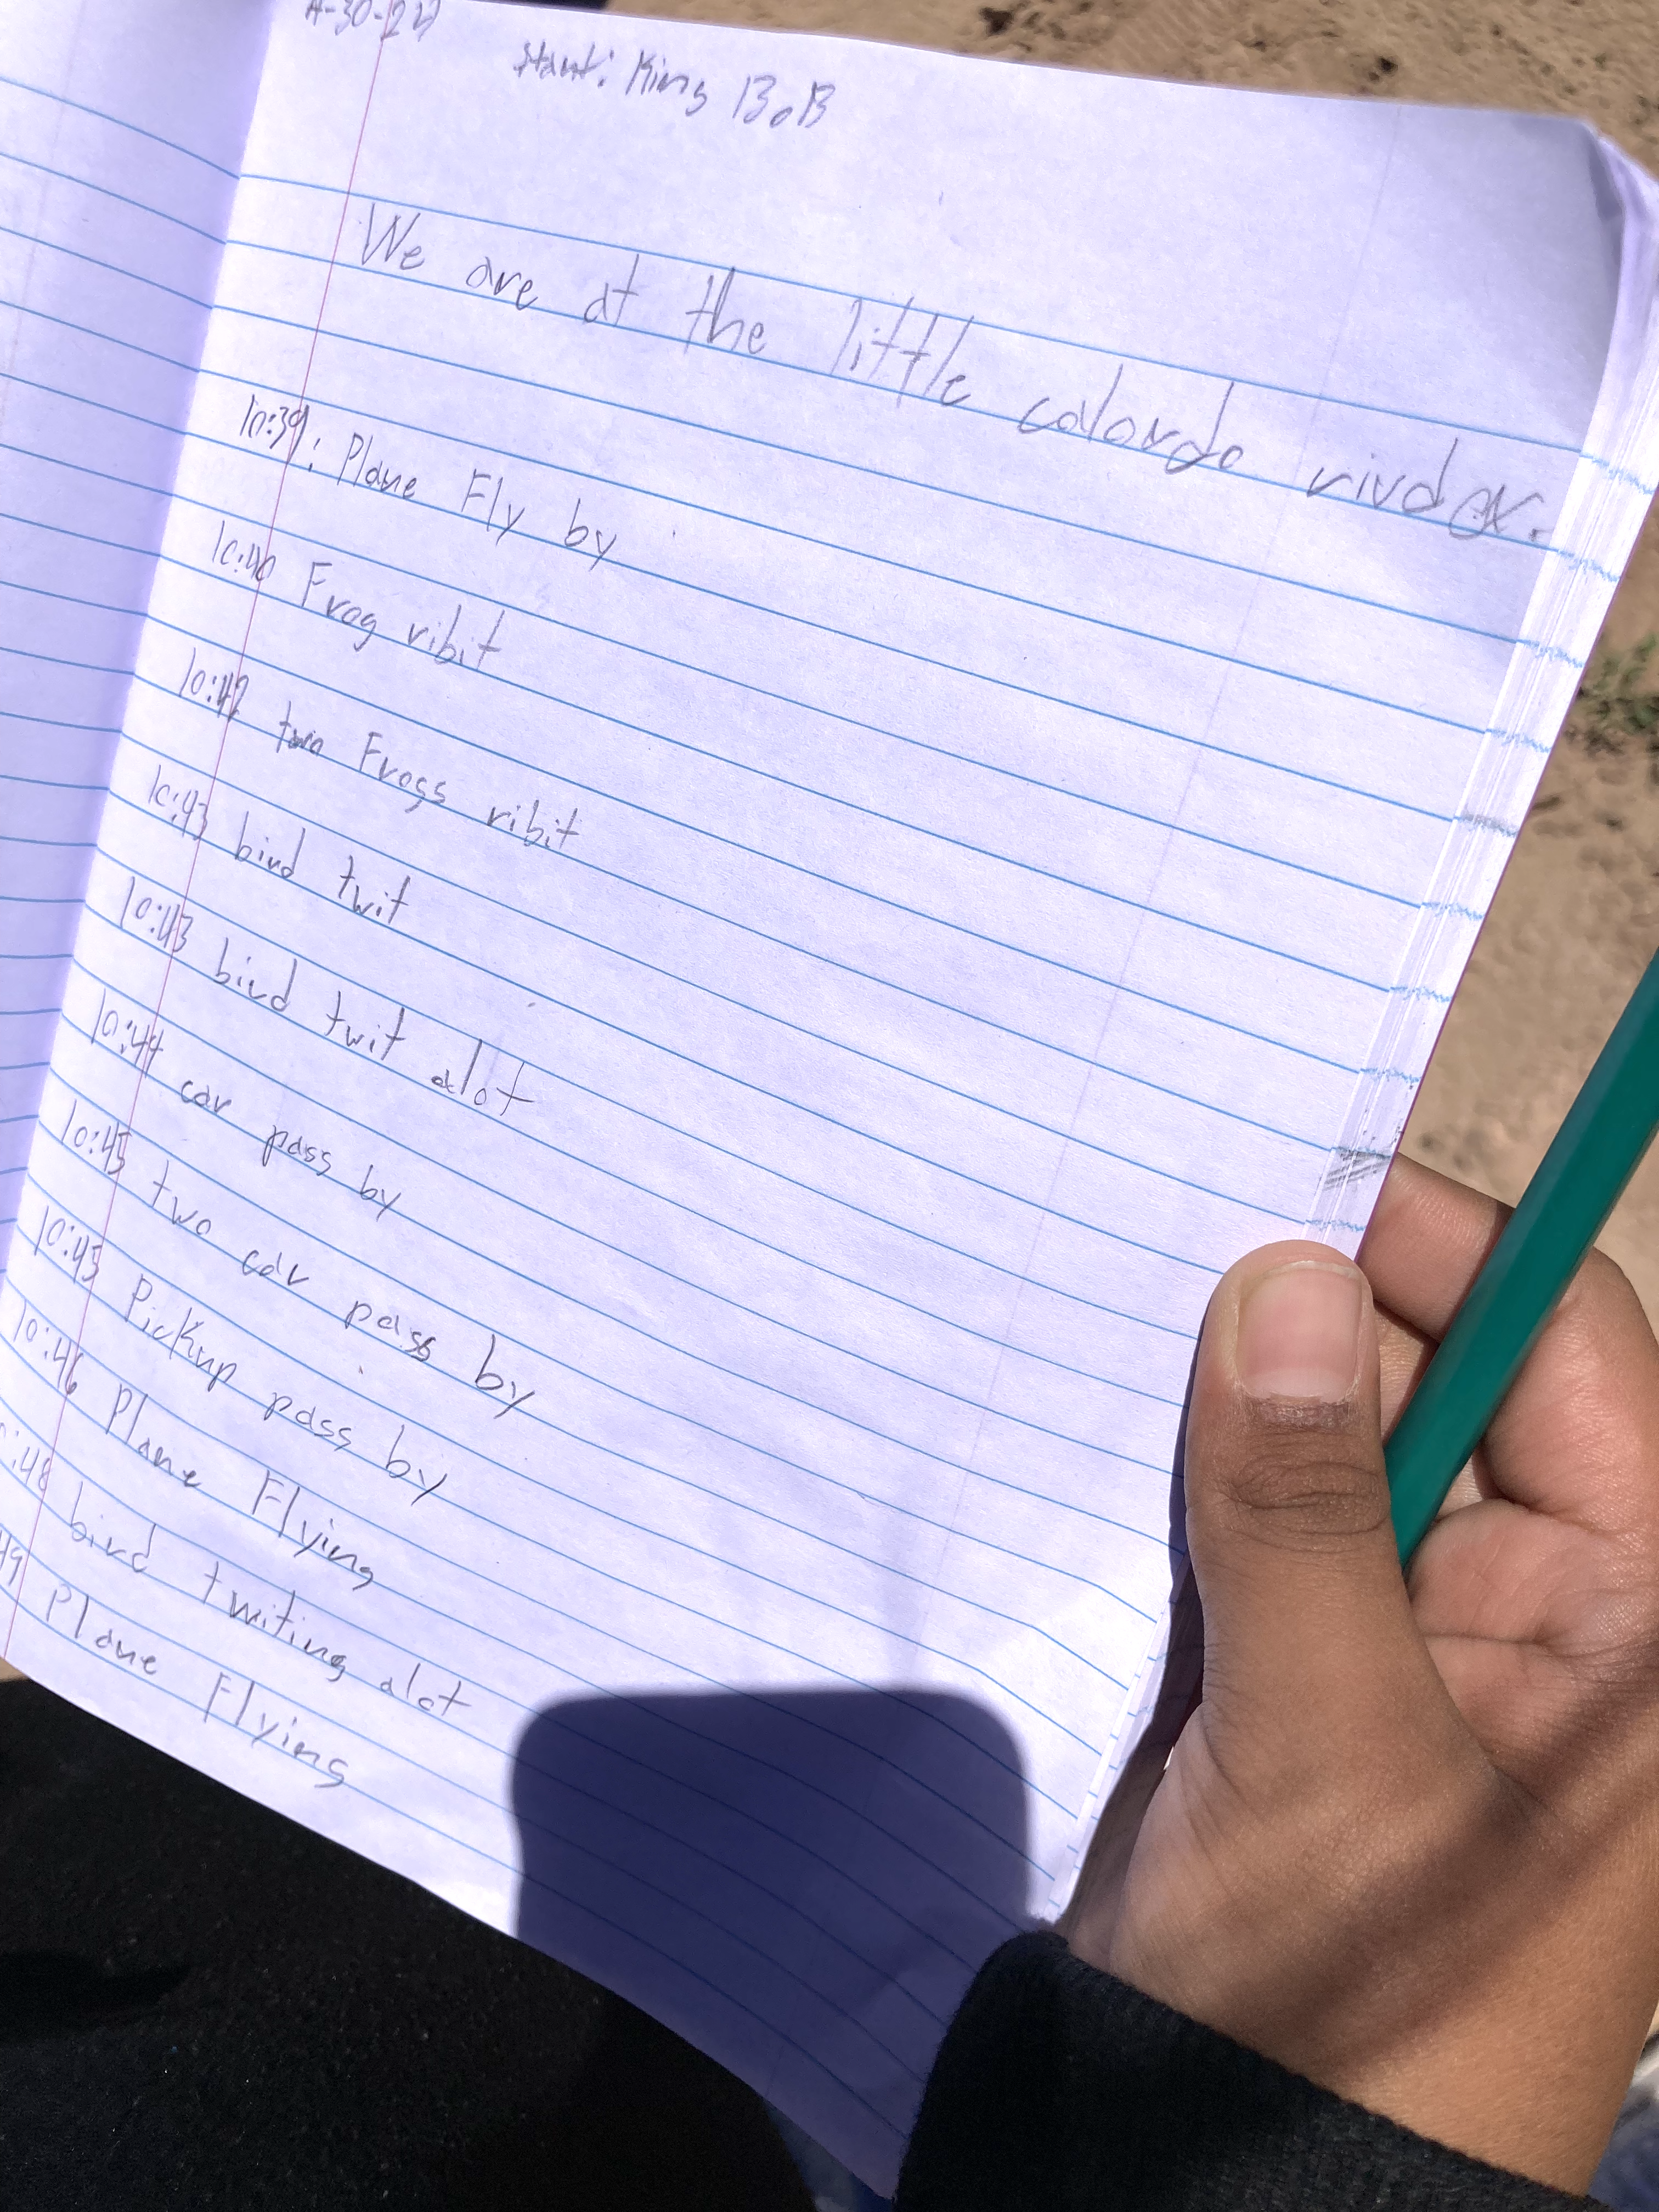 4-30-22
Start: King BoB
We are at the little calordo rivder.
10:39: Plane Fly by
10:40 Frog ribit
10:42 two Frogs ribit
10:43 bird twit
10:43 bird twit alot
10:44 car pass by
10:45 two car pass by
10:45 Pickup pass by
10:46 Plane Flying
:48 bird twiting alot
49 Plane Flying